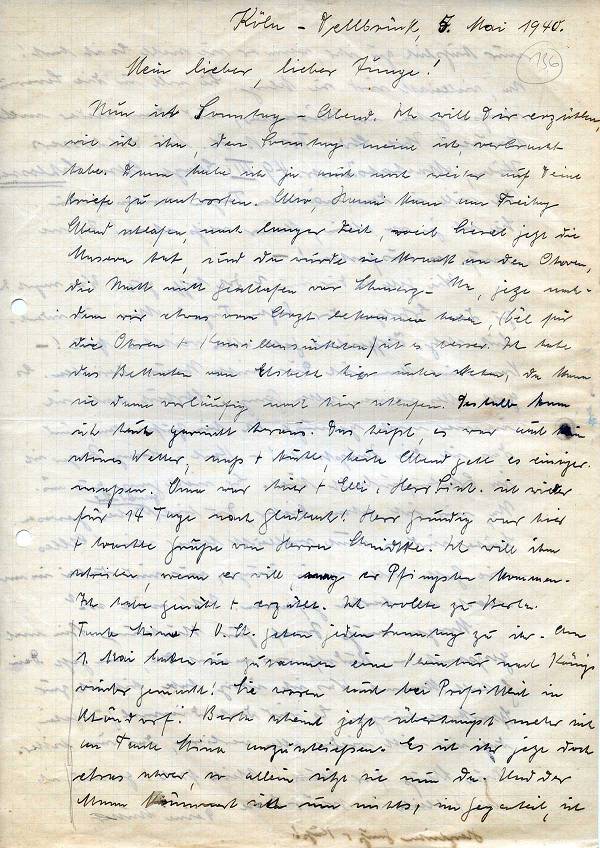 Köln-Dellbrück, 5. Mai 1940.
136
Mein lieber, lieber Junge!
Nun ist Sonntag-Abend. Ich will Dir erzählen,
wie ich ihn, den Sonntag meine ich verbracht
habe. Dann habe ich ja auch noch weiter auf Deine
Briefe zu antworten. Also, Hanni kam am Freitag
Abend schlafen, nach langer Zeit, weil Gisel jetzt die
Masern hat, und da wurde sie krank an den Ohren,
die Nacht nicht geschlafen vor Schmerz- Na, jetzt nach-
dem wir etwas vom Arzt bekommen haben, (Oel für
die Ohren + ) ist es besser. Ich habe
das Bettchen von hier unten stehen, da kann
sie dann vorläufig noch hier schlafen. Deshalb kam
ich heute garnicht heraus. Das heißt, es war auch kein
schönes Wetter, naß + kühl, heute Abend geht es einiger-
maßen. Oma war hier + Elli, Herr ist wieder
für 14 Tage nach! Herr Gründig war hier
+ brachte Grüße von Herrn. Ich will ihm
schreiben, wenn er will, mag er Pfingsten kommen.
Ich habe genäht + erzählt. Ich wollte zu Berta.
Tante Mina + O. gehen jeden Sonntag zu ihr. Am
1. Mai haben sie zusammen eine Tour nach Königs-
winter gemacht! Sie waren auch bei in
. Berta scheint jetzt überhaupt mehr sich
an Tante Mina anzuschließen. Es ist ihr jetzt doch
etwas schwer, so allein sitzt sie nun da. Und der
Mann kümmert sich um nichts, im Gegenteil, ist